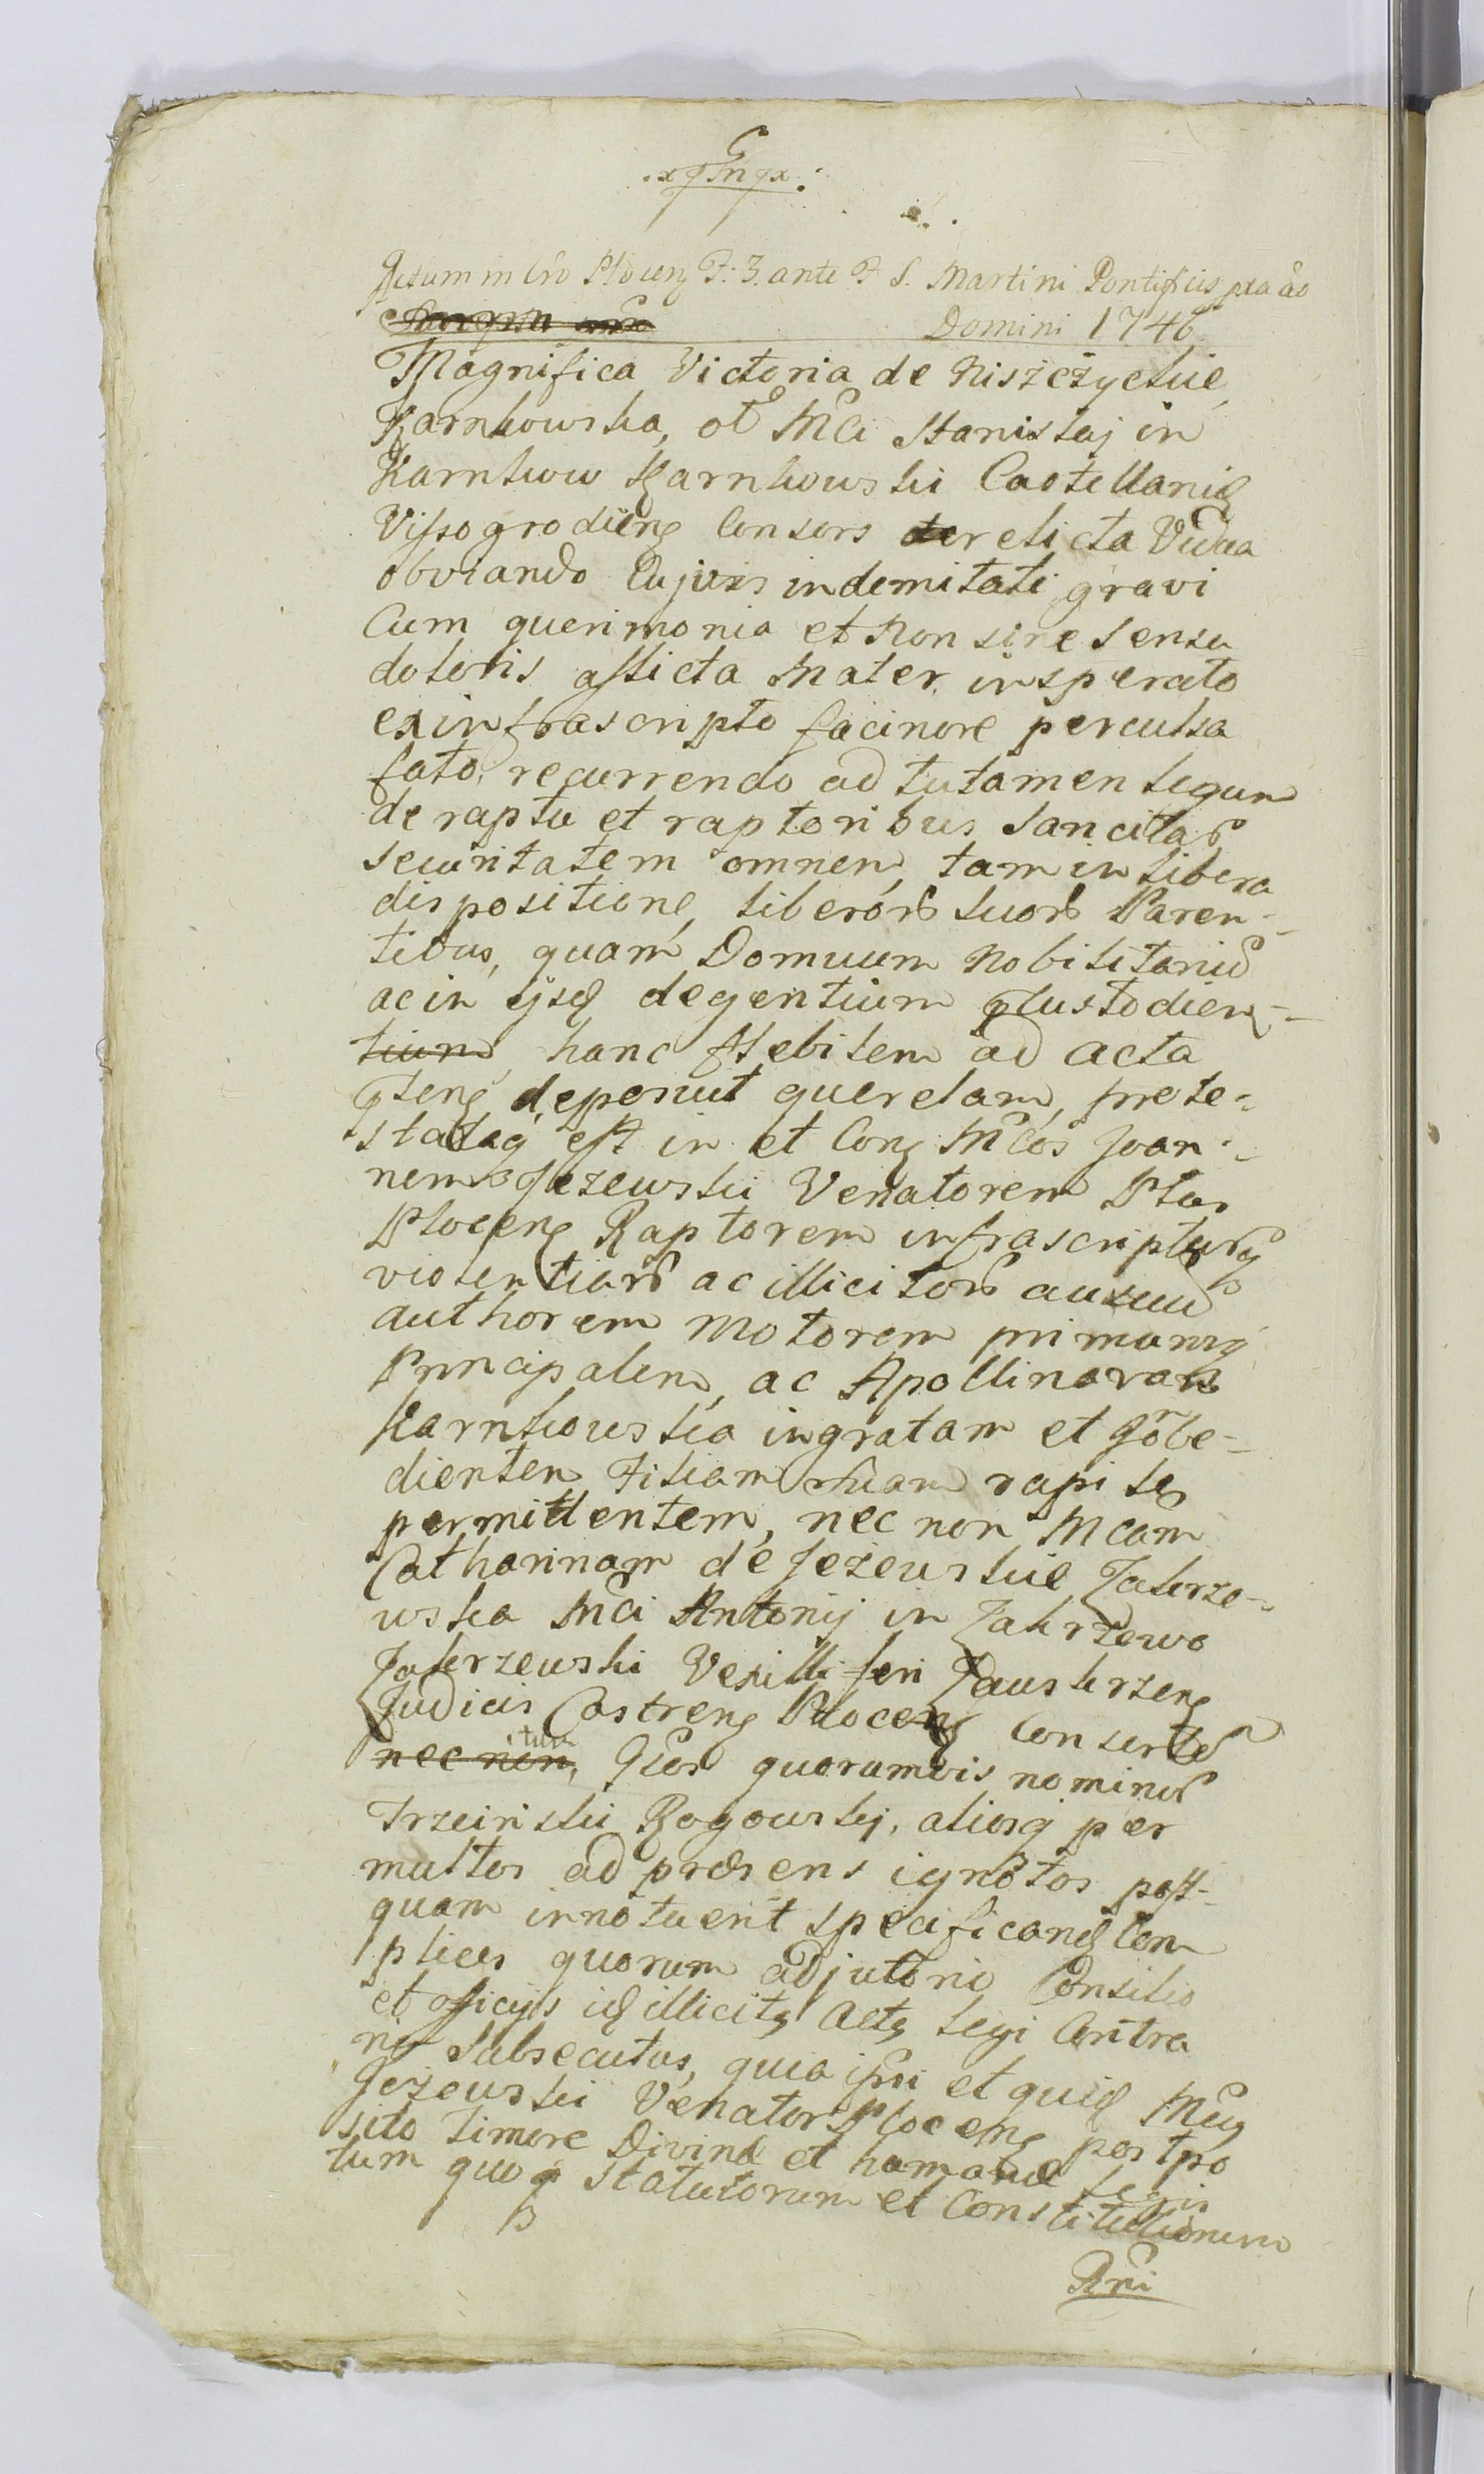 Actum in Cro Plocen F: 3. ante F. S. Martini Pontificis pxa ao
Domini 1746
Magnifica Victoria de Niszczyckie
Karnkowska, ol Mci Stanislaj in
Karnkow Karnkowski Castellani
Vissogrodien Consors derelicta Vidua
obviando Cujusvis indemitati gravi
Cum querimonia et Non sine sensu
doloris afflicta Mater insperato
ex infrascripto facinore perculsa
fato, recurrendo ad tutamen legum
de raptu et raptoribus Sancitas
securitatem omnem, tam in libera
dispositione liberorum suorum Paren-
tibus, quam Domuum Nobilitarium
ac in ijsq degentium Custodien-
tium, hanc flebilem ad acta
pten deposuit querelam, prote-
stataq est in et Con Mcos Joan-
nem Jezewski Venatorem Ptus
Plocen Raptorem infrascriptarum
violentiarum ac illicitorum ausuum
authorem motorem primarium
Principalem, ac Apollinaram
Karnkowska ingratam et Inobe-
dientem Filiam suam rapi se
permittentem, nec non Mcam
Catharinam de Jezewskie Zakrze-
wska Mci Antonij in Zakrzewo
Zakrzewski Vexilliferi Zauskrzen
Judicis Castren Plocen Consorte
nec non, tum Gsos quorumvis nominum
Trzcinski Rogowskj, aliosq per
multos ad praesens ignotos post-
quam innotuerit specificand Com
plices quorum adjutorio Consilio
et officijs id illicitus Actus legi Contra
rius Subsecutus, quia ipsi et quid Mcus
Jezewski Venator Plocen postpo
sito Timore Divinae et humanae Legis
tum quoq Statutorum et Constitutionum
Rni